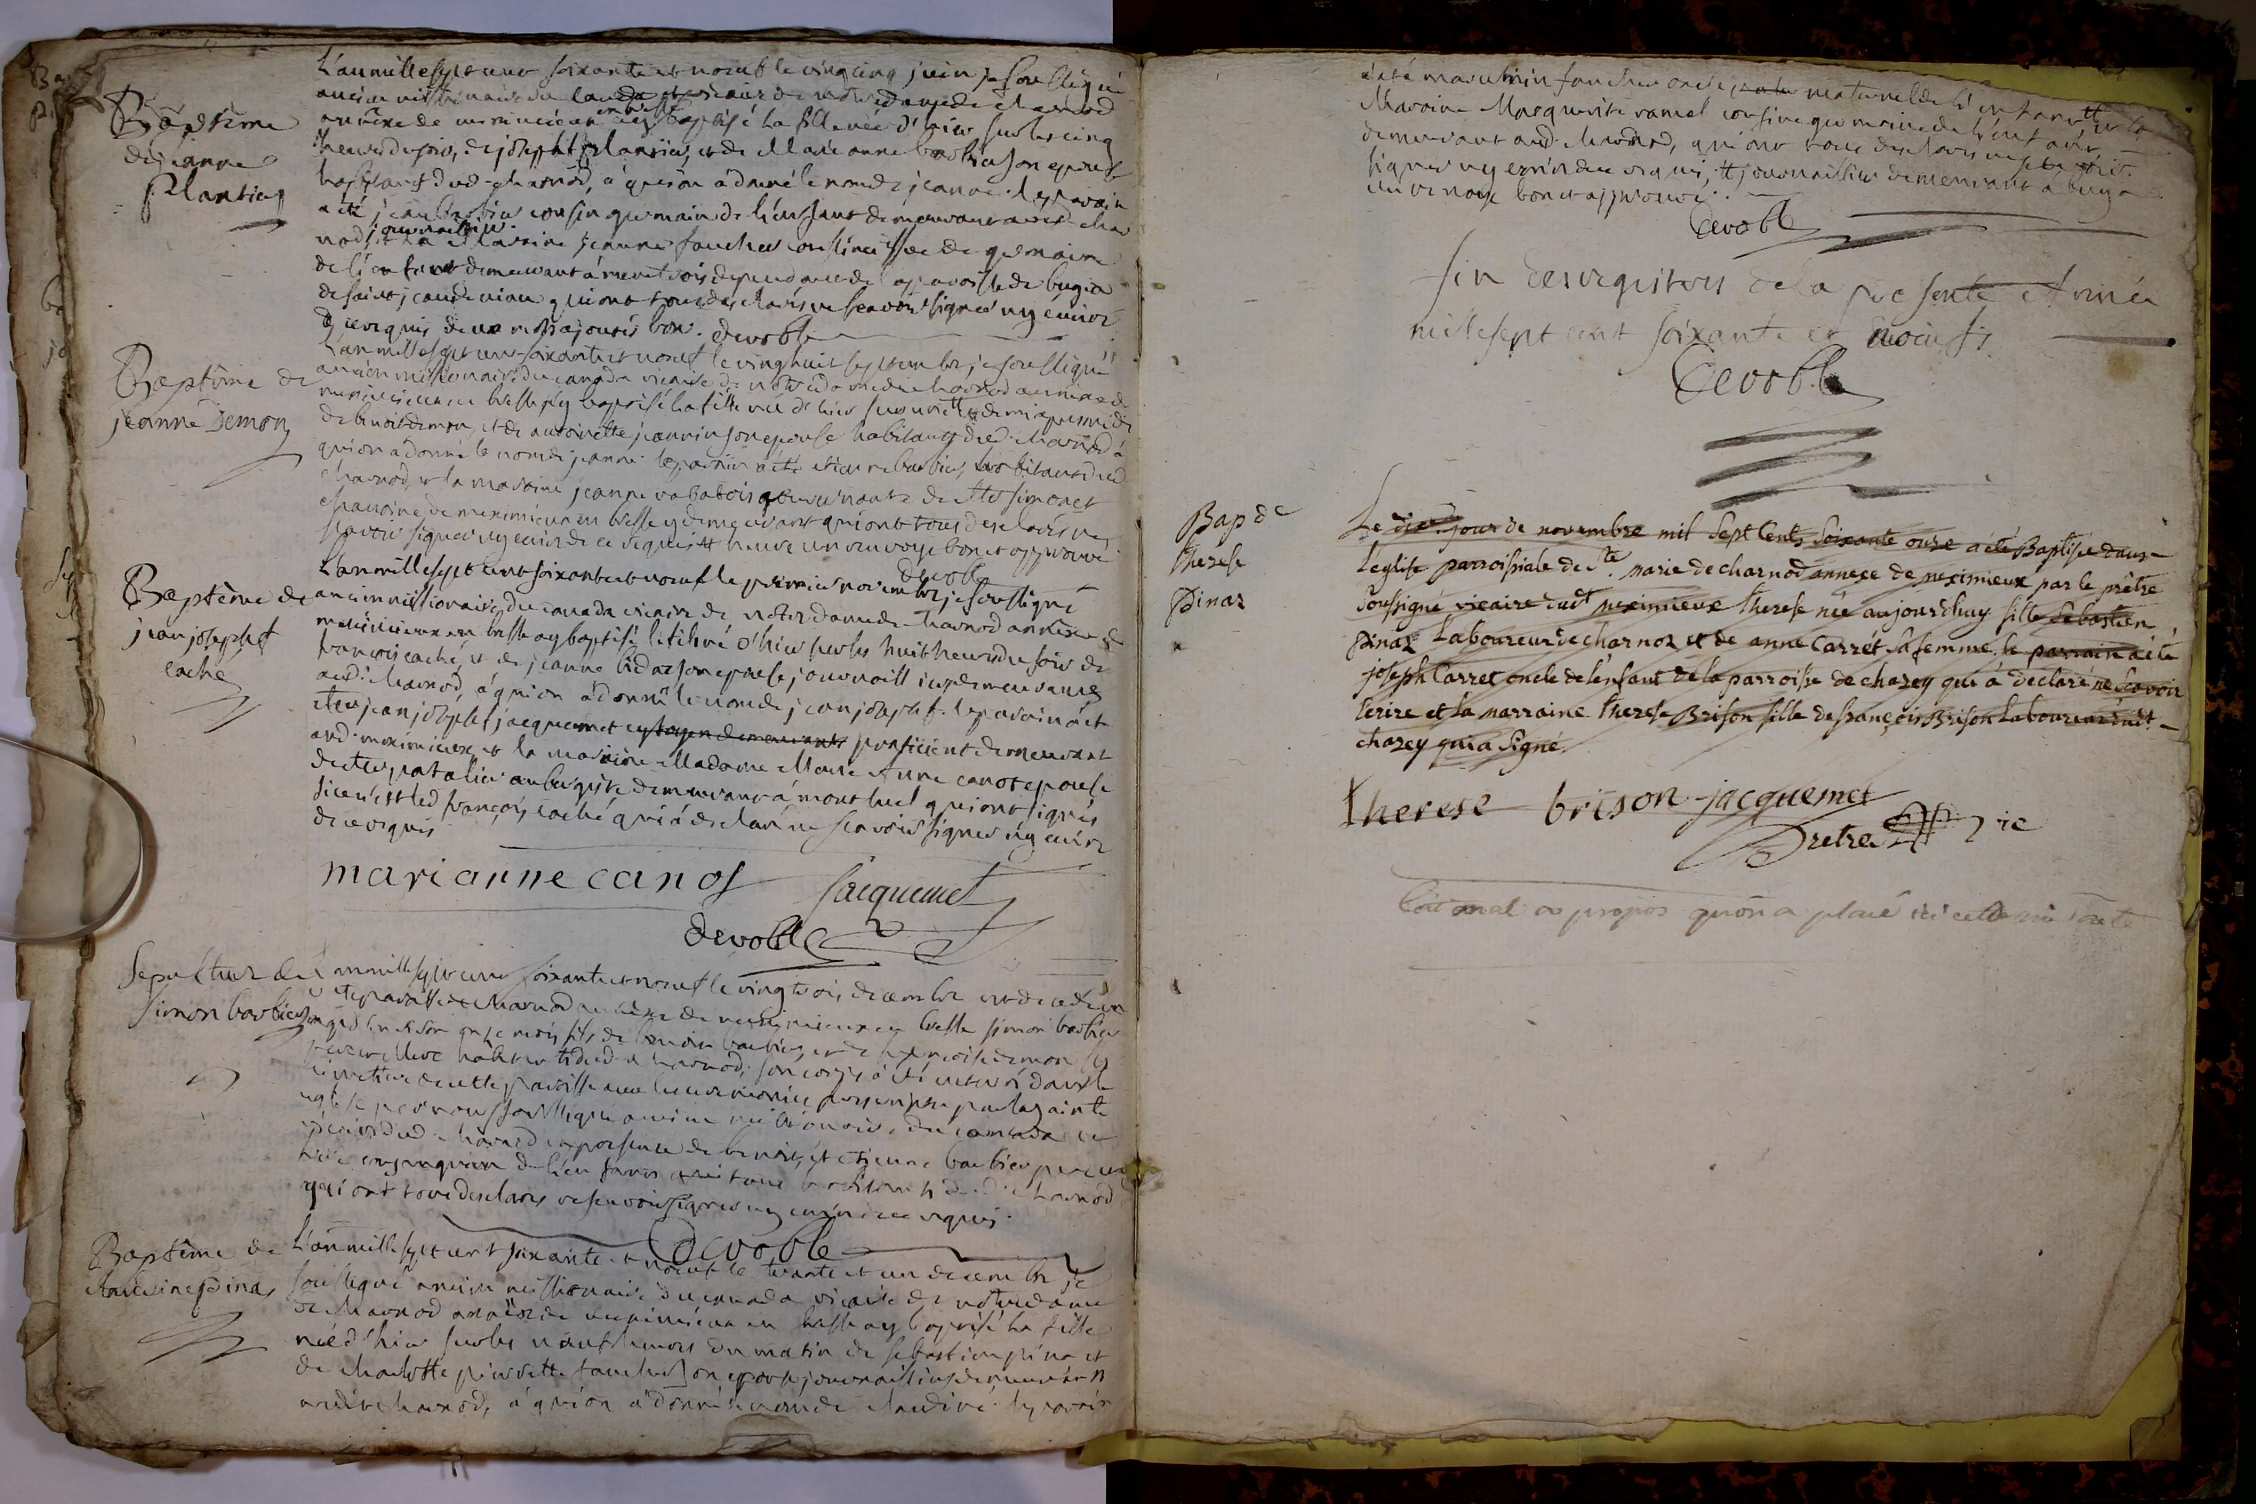 Baptême
de jeanne
plantier
L'an mille sept cent soixante et noeuf le vingt cinq juin je soussigné
ancien missionaire du canada et vicaire de notre dame de charnod
annexe de meximieux en bresse ay baptisé la fille née d'hier sur les cinq
heures du soir, de joseph plantier, et de Marie anne barbier son epouse
habitants dud. charnod, à qui on à donné le nom de jeanne. le parain
a été jean barbier cousin germain de l'enfant demeurant aud. char
journaillier
nod, et la Maraine jeanne faucher cousine issue de germaine
de l'enfant demeurant à dependance de la paroisse de bugia
de saint jean de niau qui ont tous desclarés ne scavoir signer ny écrire
de ce requis deux mots ajoutés bon. devoble
Baptême de
jeanne Demon
L'an mille sept cent soixante et noeuf le vingt huit septembre je soussigné
ancien missionaire du canada vicaire de notre dame de charnod annexe de
meximieux en bresse ay baptisé la fille née d'hier sur une # demi apres midi
de benoit demon, et de antoinette jeannin son epouse habitants dud. charnod à
qui on à donné le nom de jeanne. le parain a été etienne barbier, habitant dud.
charnod, et la maraine jeanne gouvernante de Mr simonet
chanoine de meximieux en bresse y demeurant qui ont tous desclarés ne
scavoir signer ny ecrire de ce requis # heure un renvoye bon et approuvé
devoble
Baptême de
jean joseph
caché
L'an mille sept cent soixante et noeuf le premier novembre je soussigné
ancien missionaire du canada vicaire de notre dame de charnod annexe de
meximieux en bresse ay baptisé le fils né d'hier sur les huit heures du soir de
françois caché, et de jeanne bidat son epouse journailliers demeurants
aud. charnod, à qui on à donné le nom de jean joseph. le parain à été
Mr jean joseph jacquemet citoyen demeurant praticient demeurant
aud. meximieux, et la maraine Madame Marie Anne canot epouse
de Mr patalier aubergiste demeurant à montluel qui ont signés
si ce n'est led. françois caché qui à desclaré ne scavoir signer ny ecrire
de ce requis
marianne canot jacquemet
devoble
Sepulture de
simon barbier
L'an mille sept cent soixante et noeuf le vingt trois decembre est decedé en
cette paroisse de charnod annexe de meximieux en bresse simon barbier
agé d'environ onze mois fils de benoit barbier, et de françoise demon ses
pere et mere habitants dud. charnod, son corps à été enterré dans le
cimetiere de cette paroisse avec les ceremonies prescrites par la sainte
eglise par nous soussigné ancien missionaire du canada vi
caire dud. charnod en presence de benoit, et etienne barbier pere et
de l'enfant habitants dud. charnod
qui ont tous desclarés ne scavoir signer ny ecrire de ce requis.
devoble
Baptême de
claudine pinaz
L'an mille sept cent soixante et noeuf le trante et un decembre je
soussigné ancien missionaire du canada vicaire de notre dame
de charnod annexe de meximieux en bresse ay baptisé la fille
née d'hier sur les noeuf heures du matin de sebastien pina et
de charlotte pierrette faucher son epouse journailliers demeurants
audit charnod, à qui on à donné le nom de claudine. le parain
à été mathurin faucher oncle maternel de l'enfant, et la
Maraine Marguerite ramel cousine germaine de l'enfant
demeurant aud. charnod, qui ont tous desclarés ne scavoir
signer ny ecrire de ce requis, # journaillier demeurant a bugia
un renvoye bon et approuvé.
devoble
fin des registres de la presente Année
mille sept cent soixante et noeuf.
Devoble
Bap de
therese
Pinaz
Le jour de novembre mil sept cents soixante onze a été Baptisée dans
l'eglise parroissiale de Ste marie de charnod annexe de meximieux par le prêtre
soussigné vicaire dudt meximieux therese née aujourd'huy fille sebastien
Pinaz laboureur de charnoz et de anne Carret sa femme. le parrain a été
joseph Carret oncle de l'enfant de la parroisse de chazey qui à déclaré ne scavoir
ecrire et la marraine therese Brison fille de françois Brison laboureur dudt
chazey qui a signé.
therese brison jacquemet
Pretre vic
C'est mal a propos qu'on a placé ici cette